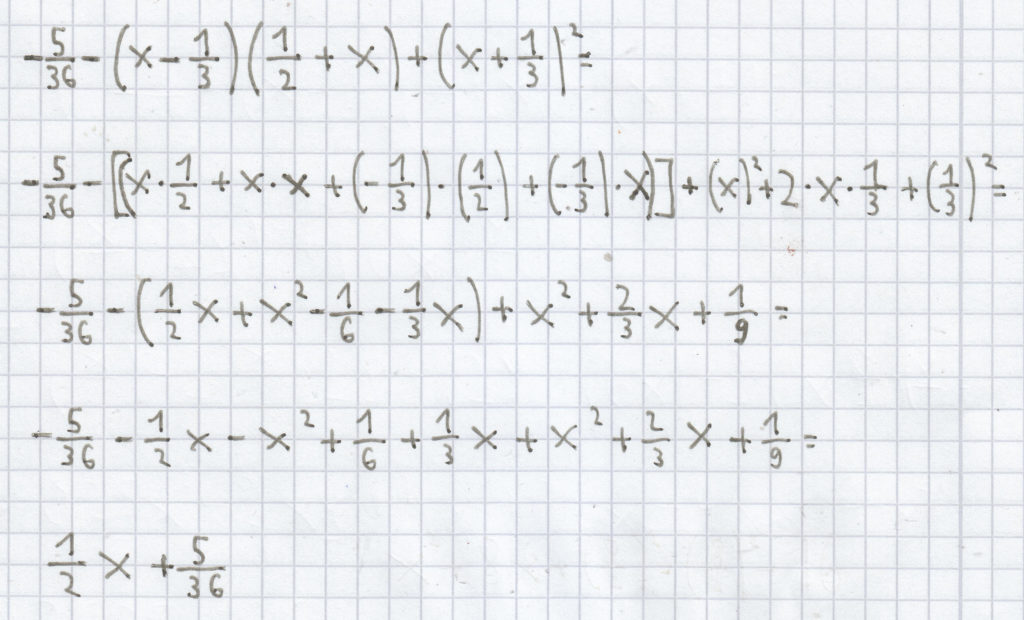 -5/36 - (x - 1/3)(1/2 + x) + (x + 1/3)² =
-5/36 - [(x · 1/2 + x · x + (-1/3) · (1/2) + (-1/3) · x)] + (x)² + 2 · x · 1/3 + (1/3)² =
-5/36 - (1/2 x + x² - 1/6 - 1/3 x) + x² + 2/3 x + 1/9 =
-5/36 - 1/2 x - x² + 1/6 + 1/3 x + x² + 2/3 x + 1/9 =
1/2 x + 5/36